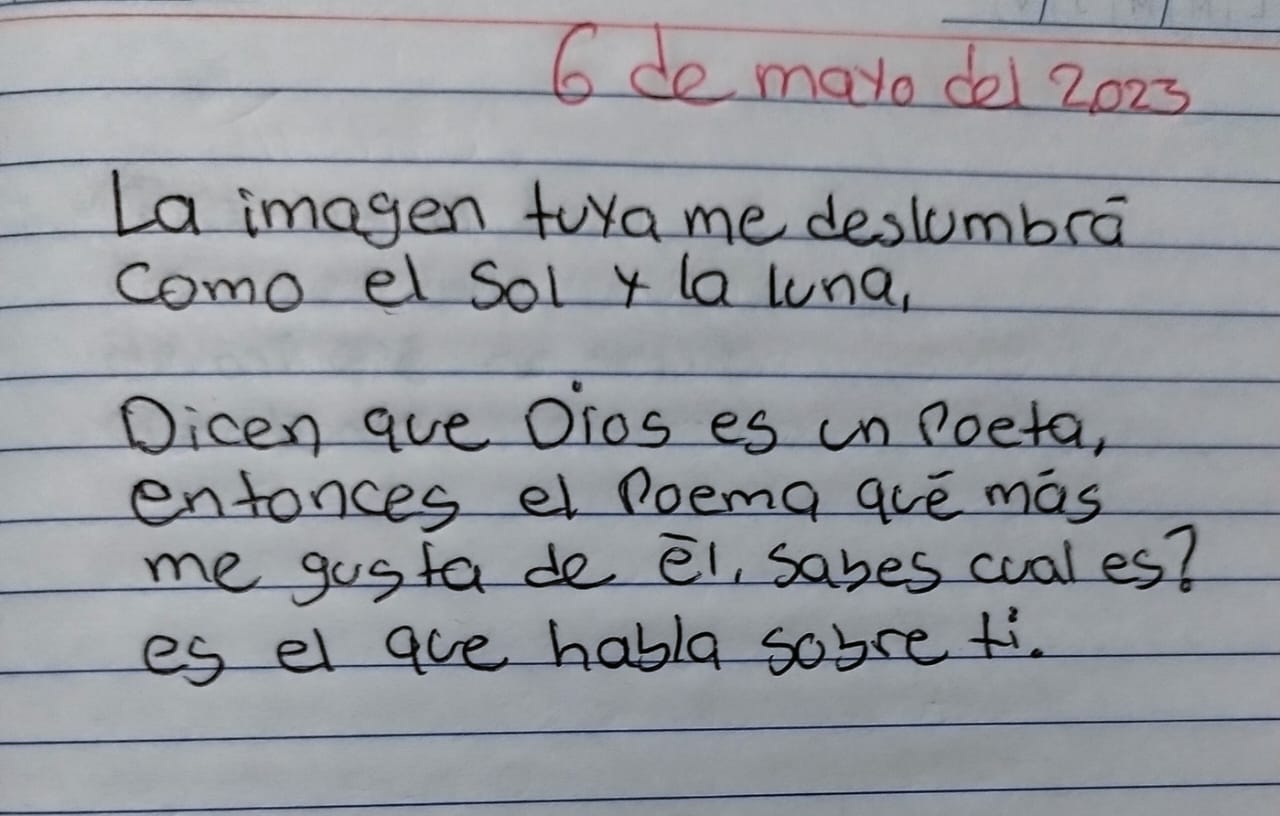 6 de mayo del 2023
La imagen tuya me deslumbrá
como el Sol y la luna,
Dicen que Dios es un Poeta,
entonces el Poema qué más
me gusta de él, sabes cual es?
es el que habla sobre ti.